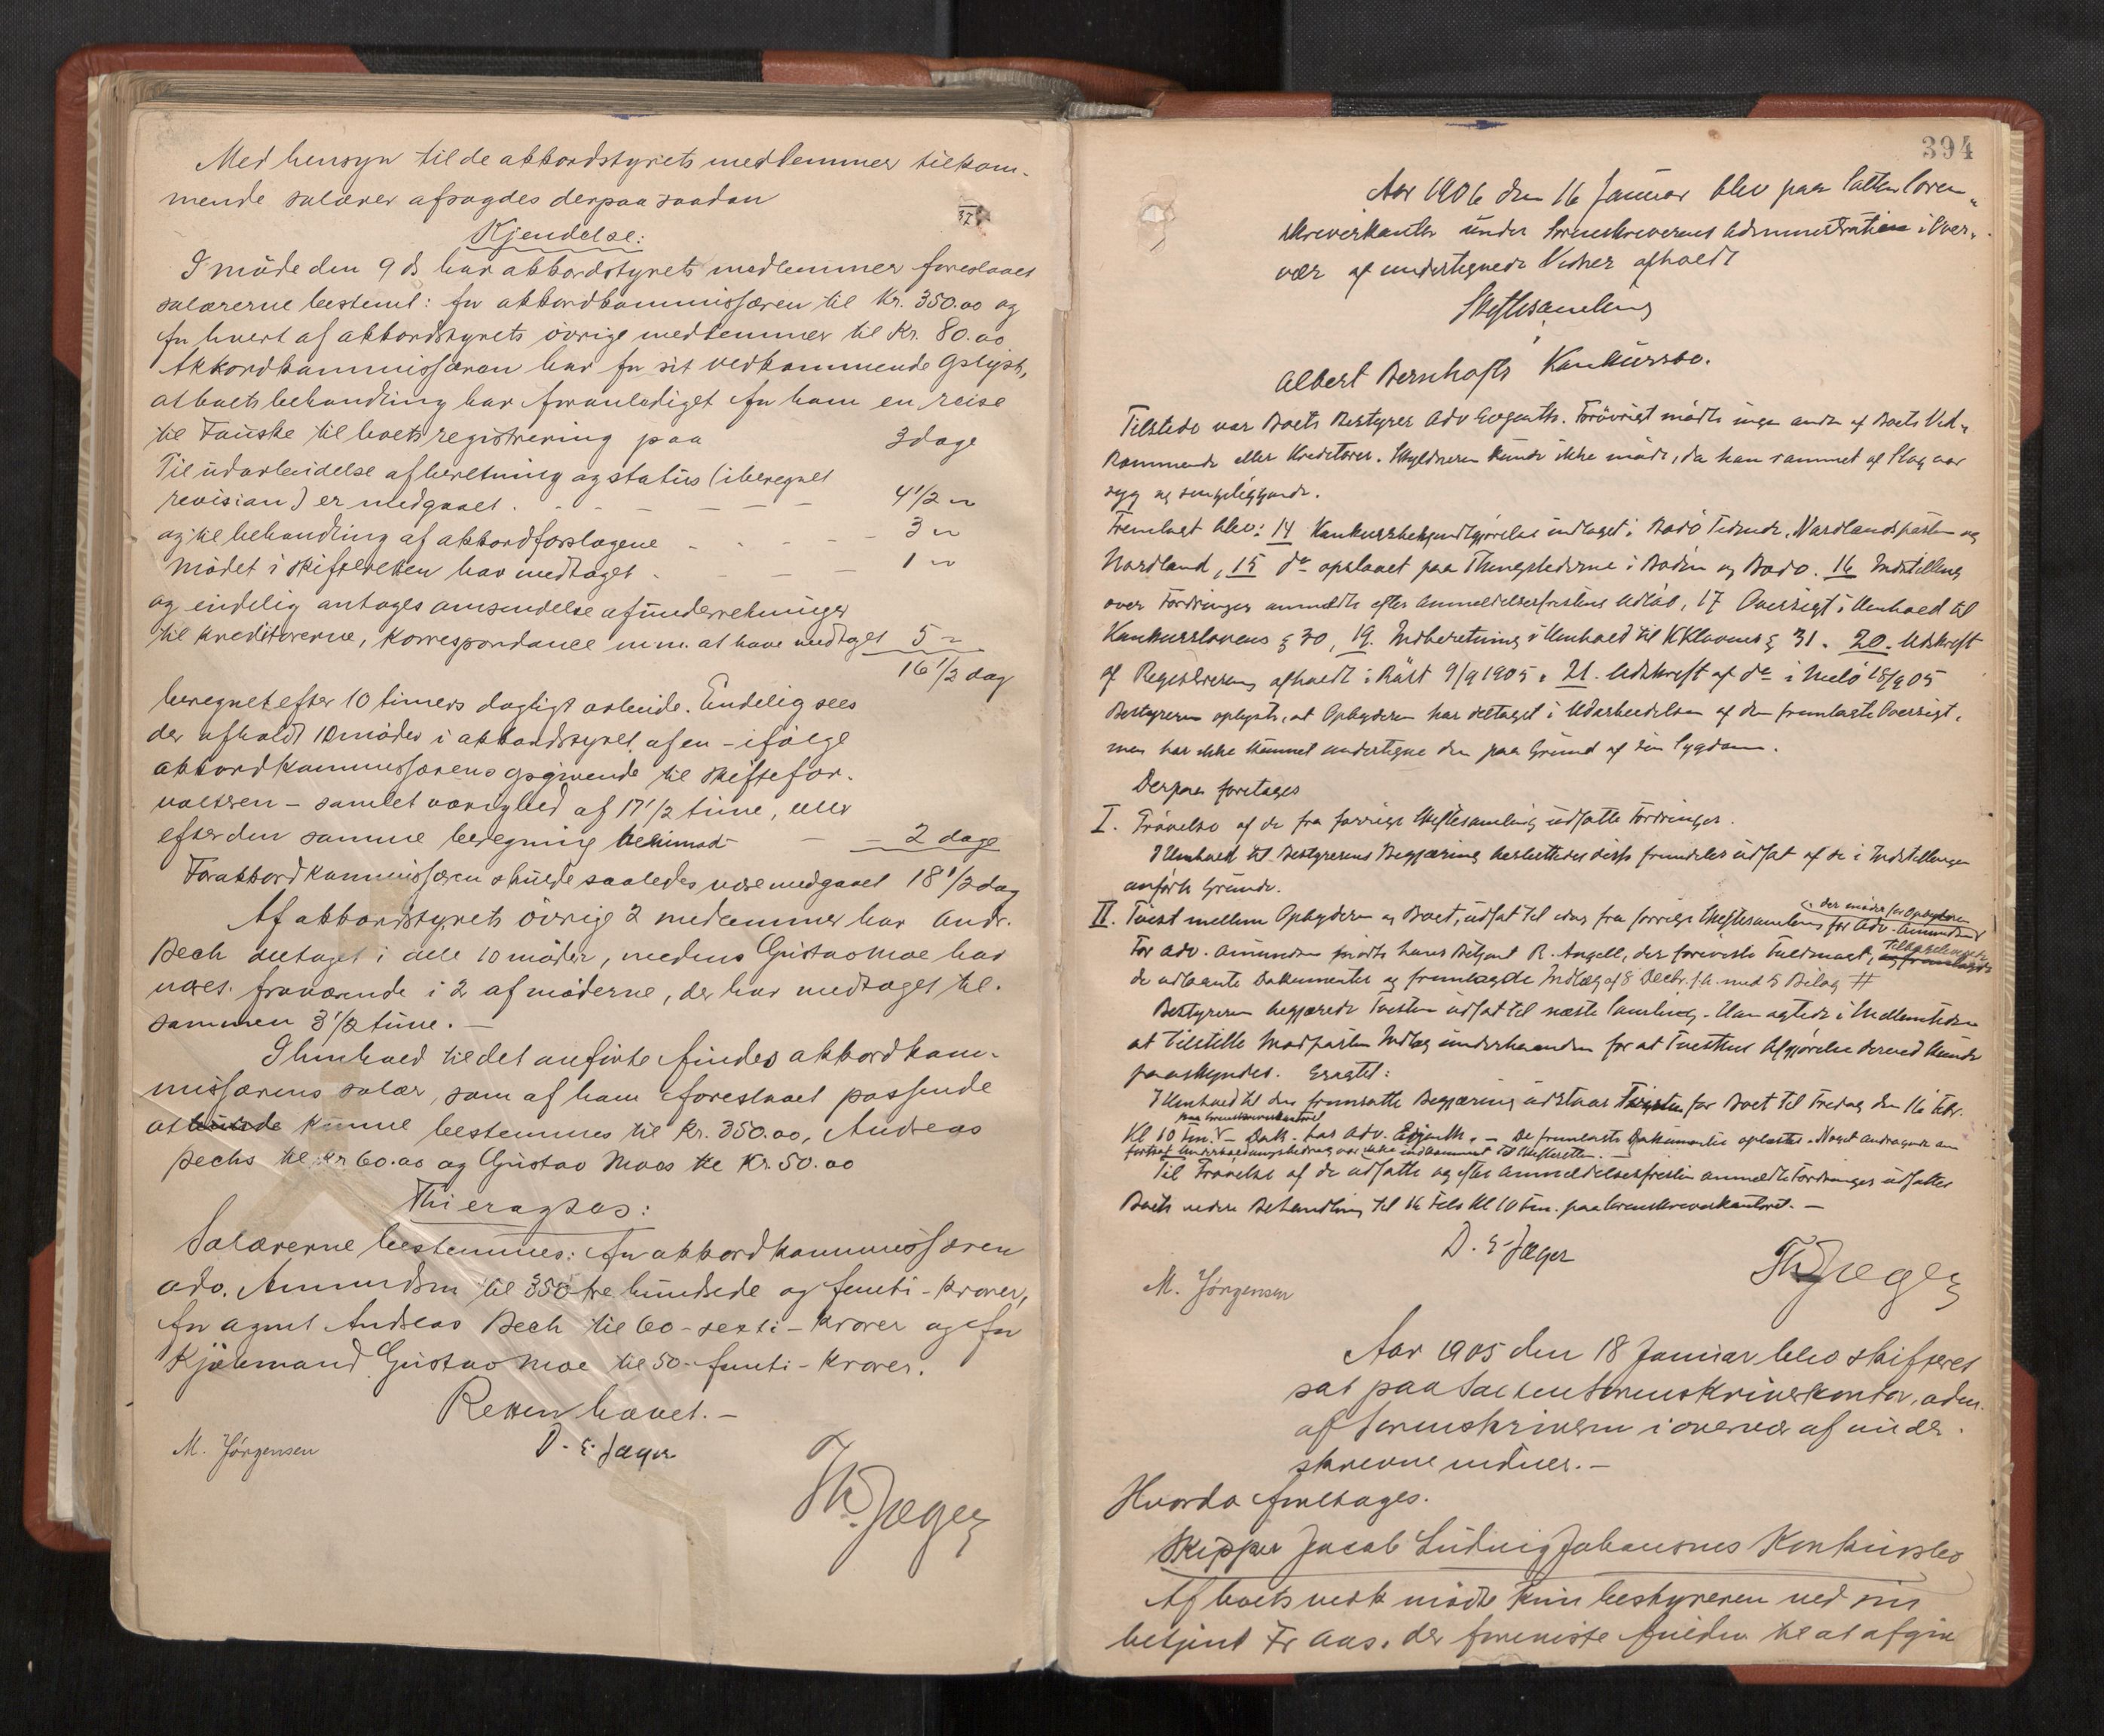 Med hensyn til de akkordstyrets medlemmer tilkom-
mende salærer afsagdes derpaa saadan
Kjendelse:
I møde den 9 ds har akkordstyrets medlemmer foreslaaet
salærerne bestemt: for akkordkommissæren til Kr. 350.00 og
for hvert af akkordstyrets øvrige medlemmer til Kr. 80.00
Akkordkommissæren har for sit vedkommende oplyst,
at boets behandling har foranlediget for ham en reise
til Fauske til boets registrering paa 3 dage
Til udarbeidelse af beretning og status (iberegnet
revision) er medgaaet . - - - - - 4 1/2 "
og til behandling af akkordforslagene - - - - - 3 "
Mødet i skifteretten har medtaget . - - - 1 "
og endelig antages amsendelse af underretninger
til kreditorerne, korrespondance m.m. at have medtaget 5 "
16 1/2 dag
beregnet efter 10 timers dagligt arbeide. Endelig sees
der afholdt 10 møder i akkordstyret af en - ifølge
akkordkommissærens opgivende til skiftefor-
valteren - samlet varighed af 17 1/2 time, eller
efter den samme beregning - - 2 dage
For akkordkommissæren skulde saaledes være medgaaet 18 1/2 dag
Af akkordstyrets øvrige 2 medlemmer har Andr.
Bech deltaget i alle 10 møder, medens Gustav Moe har
været fraværende i 2 af møderne, der har medtaget til-
sammen 3 1/2 time. -
I henhold til det anførte findes akkordkom-
missærens salær, som af ham foreslaaet passende
at burde kunne bestemmes til Kr. 350.00, Andreas
Bechs til Kr 60.00 og Gustav Moes til Kr. 50.00
Thi eragtes:
Salærerne bestemmes: for akkordkommissæren
adv. Amundsen til 350 tre hundrede og femti - kroner,
for agent Andreas Bech til 60 - sexti - kroner og for
Kjøbmand Gustav Moe til 50 - femti - kroner.
Retten hævet. -
M. Jørgensen D. E. Jæger
Th. Jæger
394
Aar 1906 den 16 Januar blev paa Salten Soren-
skriverkontor under Sorenskriverens Administration i Over-
vær af undertegnede Vidner afholdt
Skiftesamling
i
Albert Bernhofts Konkursbo.
Tilstede var Boets Bestyrer Adv Evjenth. Forøvrigt mødte ingen andre af Boets Ved-
kommende eller Kreditorer. Skyldneren kunde ikke møde, da han rammet af Slag var
syg og sengeliggende.
Fremlagt blev: 14 Konkursbekjendtgjørelse indtaget i Bodø Tidende, Nordlandsposten og
Nordland, 15 do opslaaet paa Thingstederne i Bodin og Bodø. 16 Indstilling
over Fordringer anmeldte efter Anmeldelsesfristens Udløb, 17 Oversigt i Henhold til
Konkurslovens § 30, 19. Indberetning i Henhold til KKlovens § 31. 20. Udskrift
af Registrering afholdt i Røst 9/9 1905. 21. Udskrift af do i Melø 18/9 05
Bestyreren oplyste, at Opbyderen har deltaget i Udarbeidelsen af den fremlagte Oversigt,
men har ikke kunnet undertegne den paa Grund af sin Sygdom.
Derpaa foretages
I. Prøvelse af de fra forrige Skiftesamling udsatte Fordringer.
I Henhold til Bestyrerens Begjæring besluttedes disse fremdeles udsat af de i Indstillingen
anførte Grunde.
II. Tvist mellem Opbyderen og Boet, udsat til idag fra forrige Skiftesamling for Adv. Amundsen
der møder for Opbyderen
For Adv. Amundsen mødte hans Betjent R. Angell, der foreviste Fuldmagt, og fremlagde
Tilbageleverede
de udlaante Dokumenter og fremlagde Indlæg af 8 Decbr. f.A. med 5 Bilag #
Bestyreren begjærede Tvisten udsat til næste Samling. Han agtede i Mellemtiden
at tilstille Modparten Indlæg underhaanden for at Tvistens Afgjørelse derved kunde
paaskyndes. Eragtet:
I Henhold til den fremsatte Begjæring udstaar Tvisten for Boet til Fredag den 16 Febr.
paa Sorenskriverkontoret
Kl 10 Fm. - Dok. har Adv. Evjenth. - De fremlagte Dokumenter oplæstes. Noget Andragende om
fortsat Underholdningsbidrag var ikke indkommet til Skifteretten. -
Til Prøvelse af de udsatte og efter Anmeldelsesfristen anmeldte Fordringer udsattes
Boets videre Behandling til 16 Feb Kl 10 Fm. paa Sorenskriverkontoret. -
D. E. Jæger
M. Jørgensen Th Jæger
Aar 1905 den 18 Januar blev skifteret
sat paa Salten Sorenskriverkontor, adm.
af Sorenskriveren i overvær af under-
skrevne vidner. -
Hvorda foretages.
Skipper Jacob Ludvig Johansens Konkursbo
Af boets vedk mødte kun bestyreren ved sin
betjent Fr Aas. der foreviste fuldm til at afgive